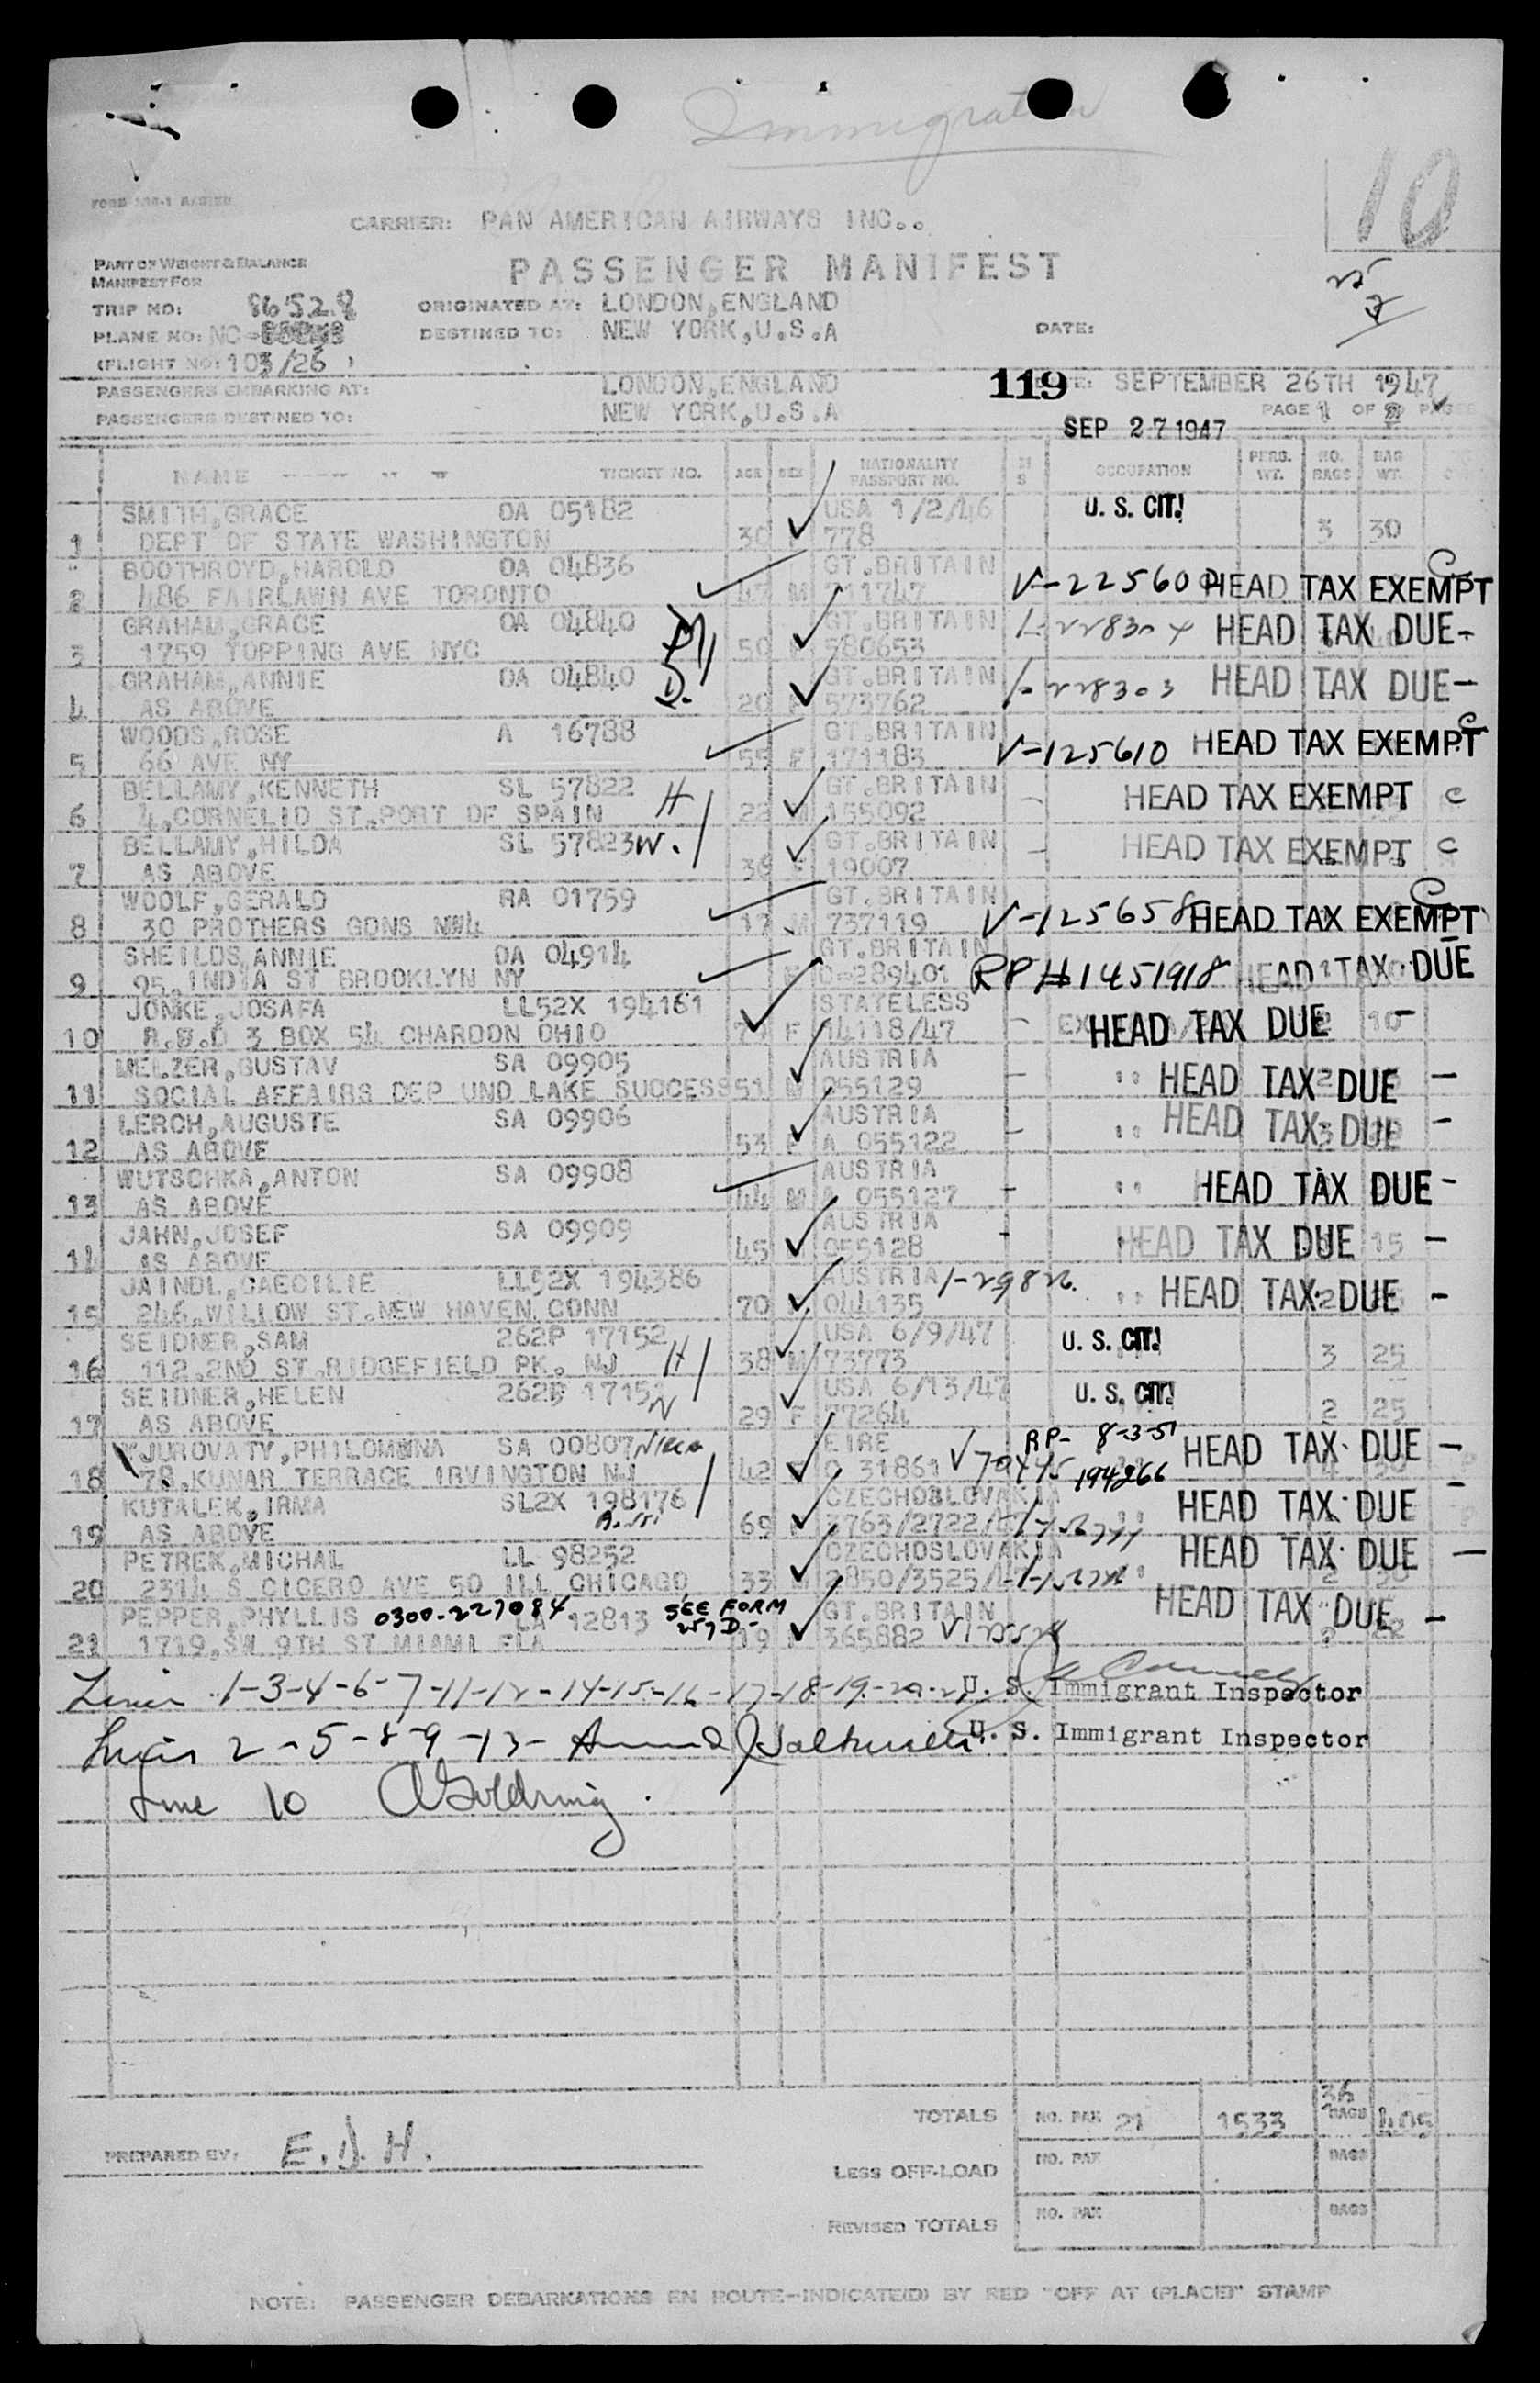 Immigration
10
CARRIER: PAN AMERICAN AIRWAYS INC..
PART OF WEIGHT & BALANCE
MANIFEST FOR
PASSENGER MANIFEST
TRIP NO: 86528 ORIGINATED AT: LONDON,ENGLAND
PLANE NO: NC- DESTINED TO: NEW YORK,U.S.A DATE:
(FLIGHT NO: 103/26 )
PASSENGERS EMBARKING AT: LONDON,ENGLAND 119 SEPTEMBER 26TH 1947
PASSENGERS DESTINED TO: NEW YORK,U.S.A PAGE 1 OF 2
SEP 27 1947
NAME TICKET NO. AGE SEX NATIONALITY PASSPORT NO. M S OCCUPATION PERS. WT. NO. BAGS BAG WT.
SMITH,GRACE OA 05182 USA 1/2/46 U. S. CIT.
1 DEPT OF STATE WASHINGTON 30 778 3 30
BOOTHROYD,HAROLD OA 04836 GT.BRITAIN
2 486 FAIRLAWN AVE TORONTO 47 M 711747 V-225600 HEAD TAX EXEMPT C
GRAHAM,GRACE OA 04840 M GT.BRITAIN HEAD TAX DUE-
3 1759 TOPPING AVE NYC 50 580653
GRAHAM,ANNIE OA 04840 D. GT.BRITAIN 1-228303 HEAD TAX DUE-
4 AS ABOVE 20 573762
WOODS,ROSE A 16788 GT.BRITAIN
5 66 AVE NY 55 F 171183 V-125610 HEAD TAX EXEMPT C
BELLAMY,KENNETH SL 57822 H GT.BRITAIN HEAD TAX EXEMPT C
6 4,CORNELIO ST.PORT OF SPAIN 22 M 155092
BELLAMY,HILDA SL 57823 W. GT.BRITAIN HEAD TAX EXEMPT C
7 AS ABOVE 36 19007
WOOLF,GERALD RA 01759 GT.BRITAIN
8 30 PROTHERS GDNS NW4 17 M 737119 V-125658 HEAD TAX EXEMPT C
SHEILDS,ANNIE OA 04914 GT.BRITAIN
9 95,INDIA ST BROOKLYN NY F 0-289401 RP #1451918 HEAD TAX DUE
JONKE,JOSAFA LL52X 194161 STATELESS
10 R.F.D 3 BOX 54 CHARDON OHIO F 14118/47 HEAD TAX DUE 10 -
MELZER,GUSTAV SA 09905 AUSTRIA
11 SOCIAL AFFAIRS DEP UNO LAKE SUCCESS 51 M 055129 HEAD TAX DUE -
LERCH,AUGUSTE SA 09906 AUSTRIA
12 AS ABOVE 53 F A 055122 HEAD TAX DUE -
WUTSCHKA,ANTON SA 09908 AUSTRIA
13 AS ABOVE 44 M A 055127 HEAD TAX DUE -
JAHN,JOSEF SA 09909 AUSTRIA
14 AS ABOVE 45 055128 HEAD TAX DUE 15 -
JAINDL,CAECILIE LL52X 194386 AUSTRIA
15 246,WILLOW ST.NEW HAVEN,CONN 70 044135 HEAD TAX DUE -
SEIDNER,SAM 262P 17152 H USA 6/9/47 U. S. CIT.
16 112,2ND ST.RIDGEFIELD PK. NJ 38 M 73773 3 25
SEIDNER,HELEN 262P 1715 W USA 6/13/47 U. S. CIT.
17 AS ABOVE 29 F 77264 2 25
JUROVATY,PHILOMENA SA 00807 Niece EIRE RP- 8-3-51 HEAD TAX DUE -
18 78,KUNAR TERRACE IRVINGTON NJ 42 31861 194266
KUTALEK,IRMA SL2X 198176 CZECHOSLOVAKIA HEAD TAX DUE -
19 AS ABOVE 69 3763/2722/
PETREK,MICHAL LL 98252 CZECHOSLOVAKIA HEAD TAX DUE -
20 2314 S CICERO AVE 50 ILL CHICAGO 33 M 2850/3525/
PEPPER,PHYLLIS 0300-227084 LA 12813 SEE FORM GT.BRITAIN HEAD TAX DUE -
21 1719,SW 9TH ST MIAMI FLA 19 365882 22
1-3-4-6-7-11-12-14-15-16-17-18-19-20-21 U. S. Immigrant Inspector
Lines 2-5-8-9-13- U. S. Immigrant Inspector
Line 10 Goldring.
TOTALS NO. PAX 21 1533 36 BAGS 405
PREPARED BY: E.D.H.
LESS OFF-LOAD NO. PAX BAGS
REVISED TOTALS NO. PAX BAGS
NOTE: PASSENGER DEBARKATIONS EN ROUTE-INDICATE(D) BY RED "OFF AT (PLACE)" STAMP